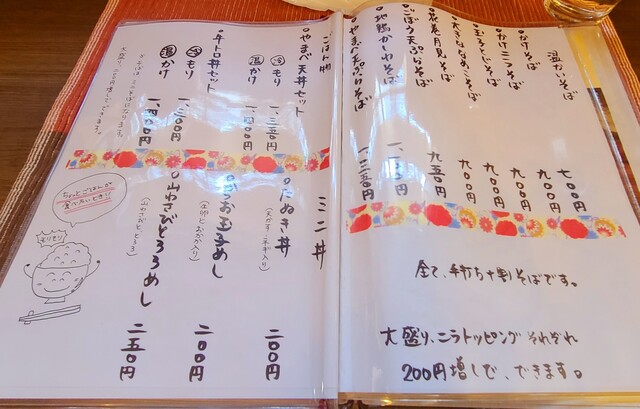 温かいそば
かけそば 七〇〇円
かけニラそば 九〇〇円
玉子とじそば 九〇〇円
大きなめこそば 九〇〇円
花巻月見そば 九五〇円
ごぼう天ぷらそば
地鶏かしわそば
やまべ天ぷらそば 一、三五〇円
全て、手打ち十割そばです。
大盛り、ニラトッピング それぞれ
200円増しで、できます。
ごはん物
やまべ天丼セット
冷 もり 一、三五〇円
温 かけ 一、四〇〇円
牛トロ丼セット
冷 もり 一、三〇〇円
温 かけ 一、四〇〇円
ミニ丼
たぬき丼 二〇〇円
めし 二〇〇円
山わさびとろろめし 二五〇円
(山わさびと、とろろ)
ちょっとごはんが
食べたいとき!!